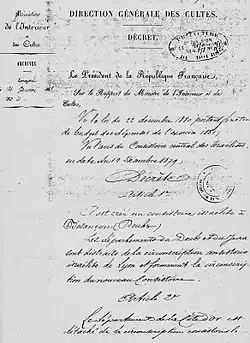 Ministère
de l'Intérieur
et des
Cultes
DIRECTION GÉNÉRALE DES CULTES.
DÉCRET.
ARCHIVES
Le Président de la République Française,
Sur le Rapport du Ministre de l'Intérieur et des
Cultes,
Vu la loi du 22 décembre 1880 portant fixation
du budget des dépenses de l'exercice 1881;
Vu l'avis du Consistoire central des Israélites
en date du 19 Décembre 1879.
Décrète
Article 1er
Il est créé un consistoire israélite à
Besançon (Doubs)
Les départements du Doubs et du Jura
sont distraits de la circonscription consistoriale
israélite de Lyon et forment la circonscription
du nouveau Consistoire.
Article 2
Le département de la Côte d'Or est
détaché de la circonscription consistoriale